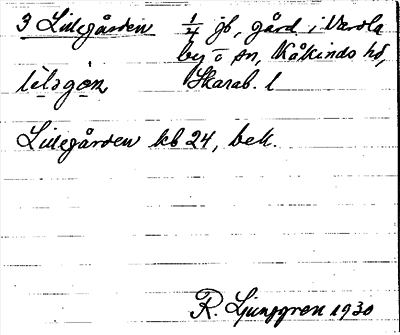 3 Lillegården 1/4 jb, gård i Varola
by o sn, Kåkinds hd,
Skarab. l
Lillegården kb 24, bell.
R. Ljunggren 1930